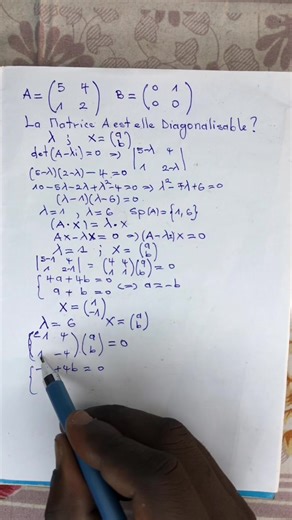 A = (5 4 1 2) B = (0 1 0 0)
La Matrice A est elle Diagonalisable ?
λ ; X = (a b)
det(A-λi) = 0 => |5-λ 4 1 2-λ|
(5-λ)(2-λ) - 4 = 0
10 - 5λ - 2λ + λ² - 4 = 0 => λ² - 7λ + 6 = 0
(λ-1)(λ-6) = 0
λ = 1 , λ = 6 Sp(A) = {1, 6}
(A·X) = λ·X
AX - λX = 0 => (A-λI)X = 0
λ = 1 ; X = (a b)
|5-1 4 1 2-1| = (4 4 1 1)(a b) = 0
{4a + 4b = 0 (=) a = -b
a + b = 0
X = (1 -1)
λ = 6 X = (a b)
-1 4 -4)(a b) = 0
{ + 4b = 0